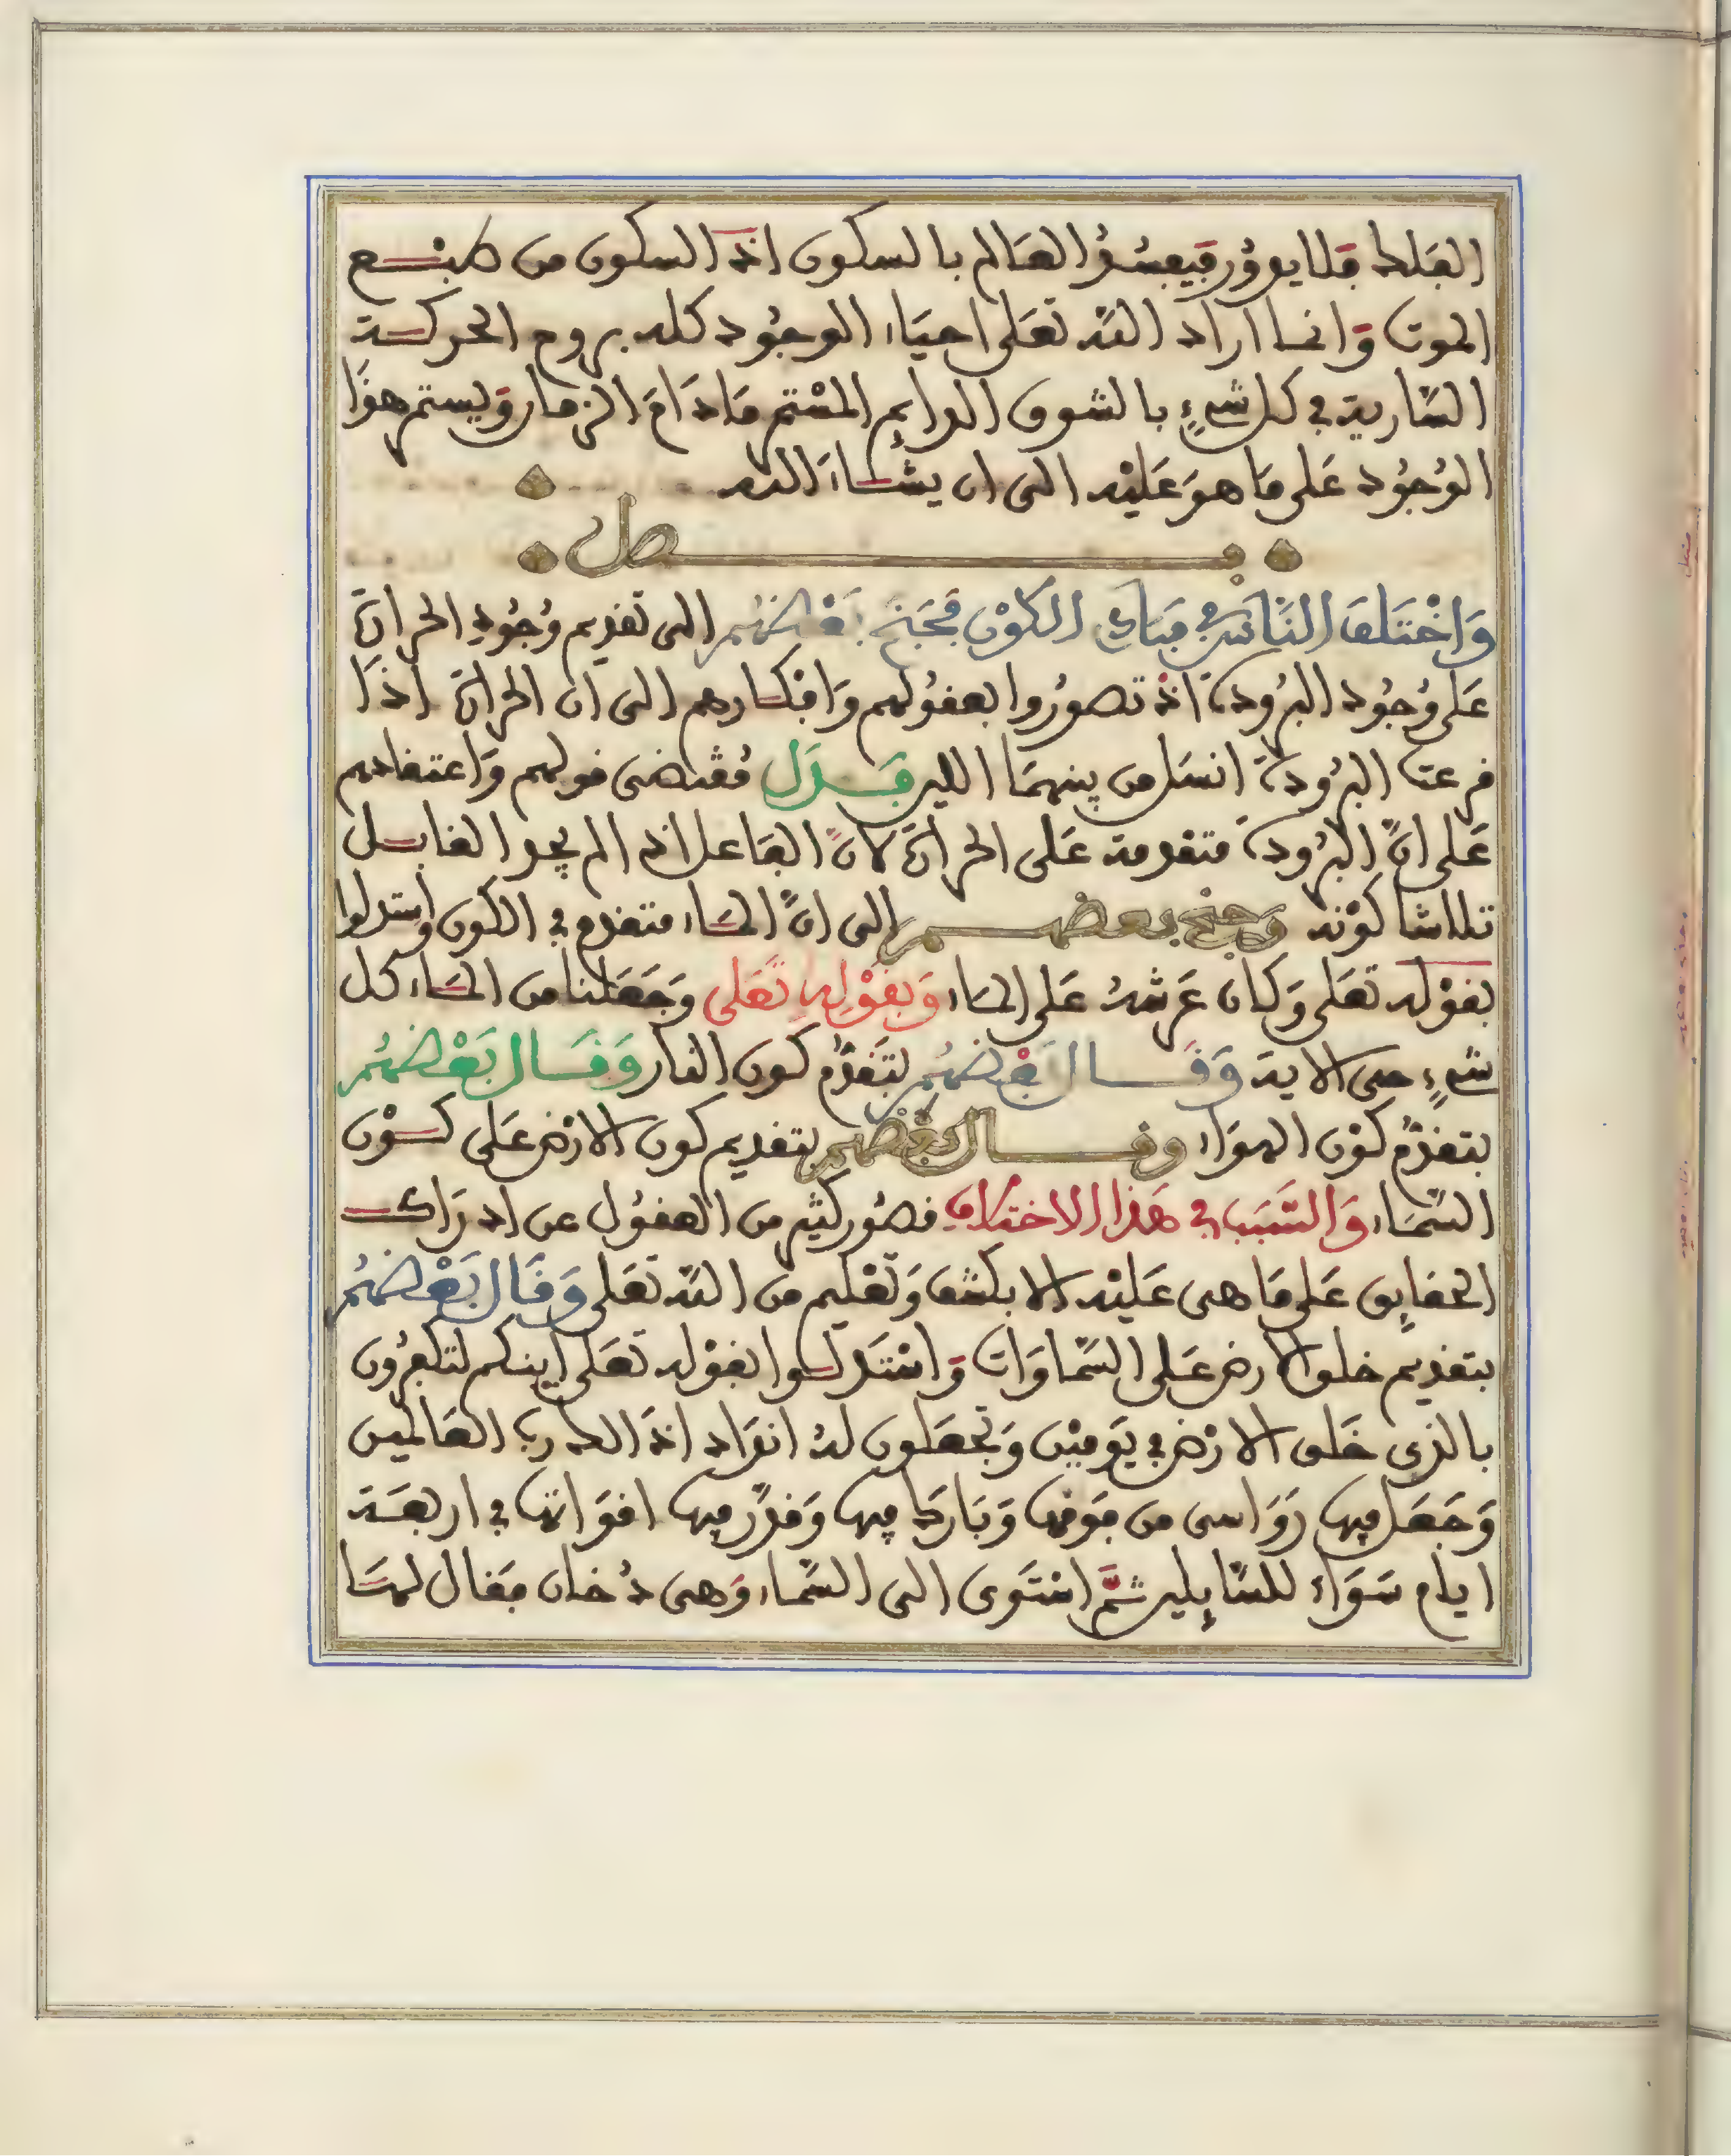 الفلك فلا يدور فيفسد العالم بالسكون اذ السكون من طبع
الموت وانما اراد الله تعلى احياء الوجود كله بروح الحركة
السارية في كل شيء بالشوق الدايم المستمر ما دام الزمان ويستمر هذا
الوجود على ما هو عليه الى ان يشاء الله
فصل
واختلف الناس في مبادي الكون فجنح بعضهم الى تقديم وجود الحرارة
على وجود البرودة اذ تصوروا بعقولهم وافكارهم الى ان الحرارة اذا
فرعت البرودة انسل من بينهما اللين فدل مقتضى قولهم واعتقادهم
على انّ البرودة متقدمة على الحرارة لانّ الفاعل اذا لم يجد القابل
تلاشا كونه وجنح بعضهم الى انّ الماء متقدم في الكون واستدلوا
بقوله تعلى وكان عرشه على الماء وبقوله تعلى وجعلنا من الماء كل
شيء حى الاية وقال بعضهم لتقدّم كون النار وقال بعضهم
بتقدّم كون الهواء وقال بعضهم بتقديم كون الارض على كون
السماء والسبب في هذا الاختلاف قصور كثير من العقول عن ادراك
الحقايق على ما هى عليه الا بكشف وتعليم من الله تعلى وقال بعضهم
بتقديم خلق الارض على السماوات واستدلوا بقوله تعلى اينكم لتكفرون
بالذى خلق الارض في يومين وتجعلون له انداد اذالك رب العالمين
وجعل فيها رواسى من فوقها وبارك فيها وقدّر فيها اقواتها في اربعة
ايام سواء للسايلين ثمّ استوى الى السماء وهى دخان فقال لها